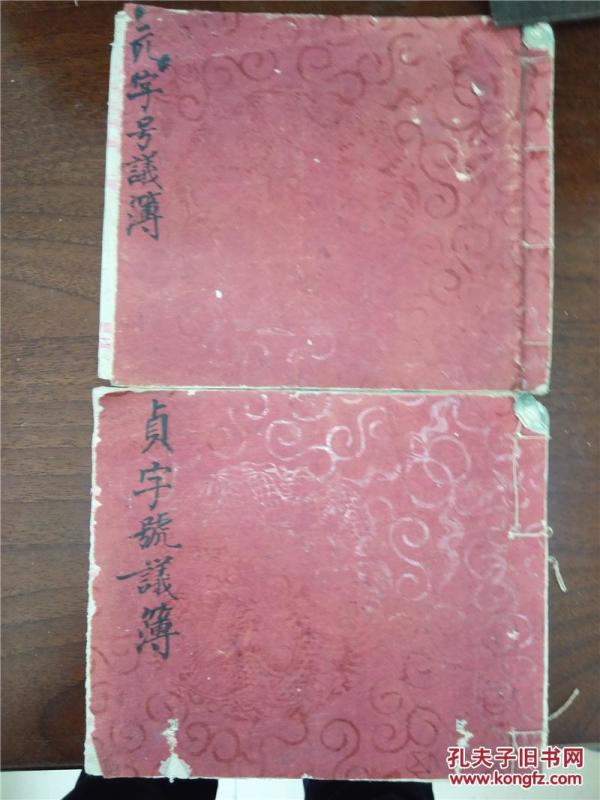 元字号議簿
貞字號議簿
孔夫子旧书网
www.kongfz.com